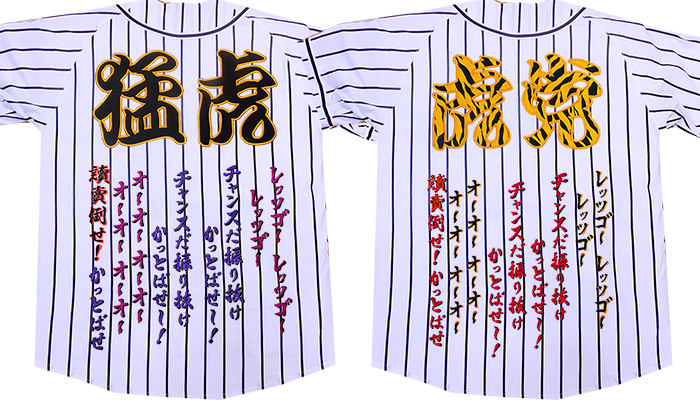 猛虎
レッツゴー レッツゴー
レッツゴー
チャンスだ振り抜け
かっとばせ〜!
チャンスだ振り抜け
かっとばせ〜!
オーオーオーオー
オーオーオーオー
讀賣倒せ!かっとばせ
虎党
レッツゴー レッツゴー
レッツゴー
チャンスだ振り抜け
かっとばせ〜!
チャンスだ振り抜け
かっとばせ〜!
オーオーオーオー
オーオーオーオー
讀賣倒せ!かっとばせ